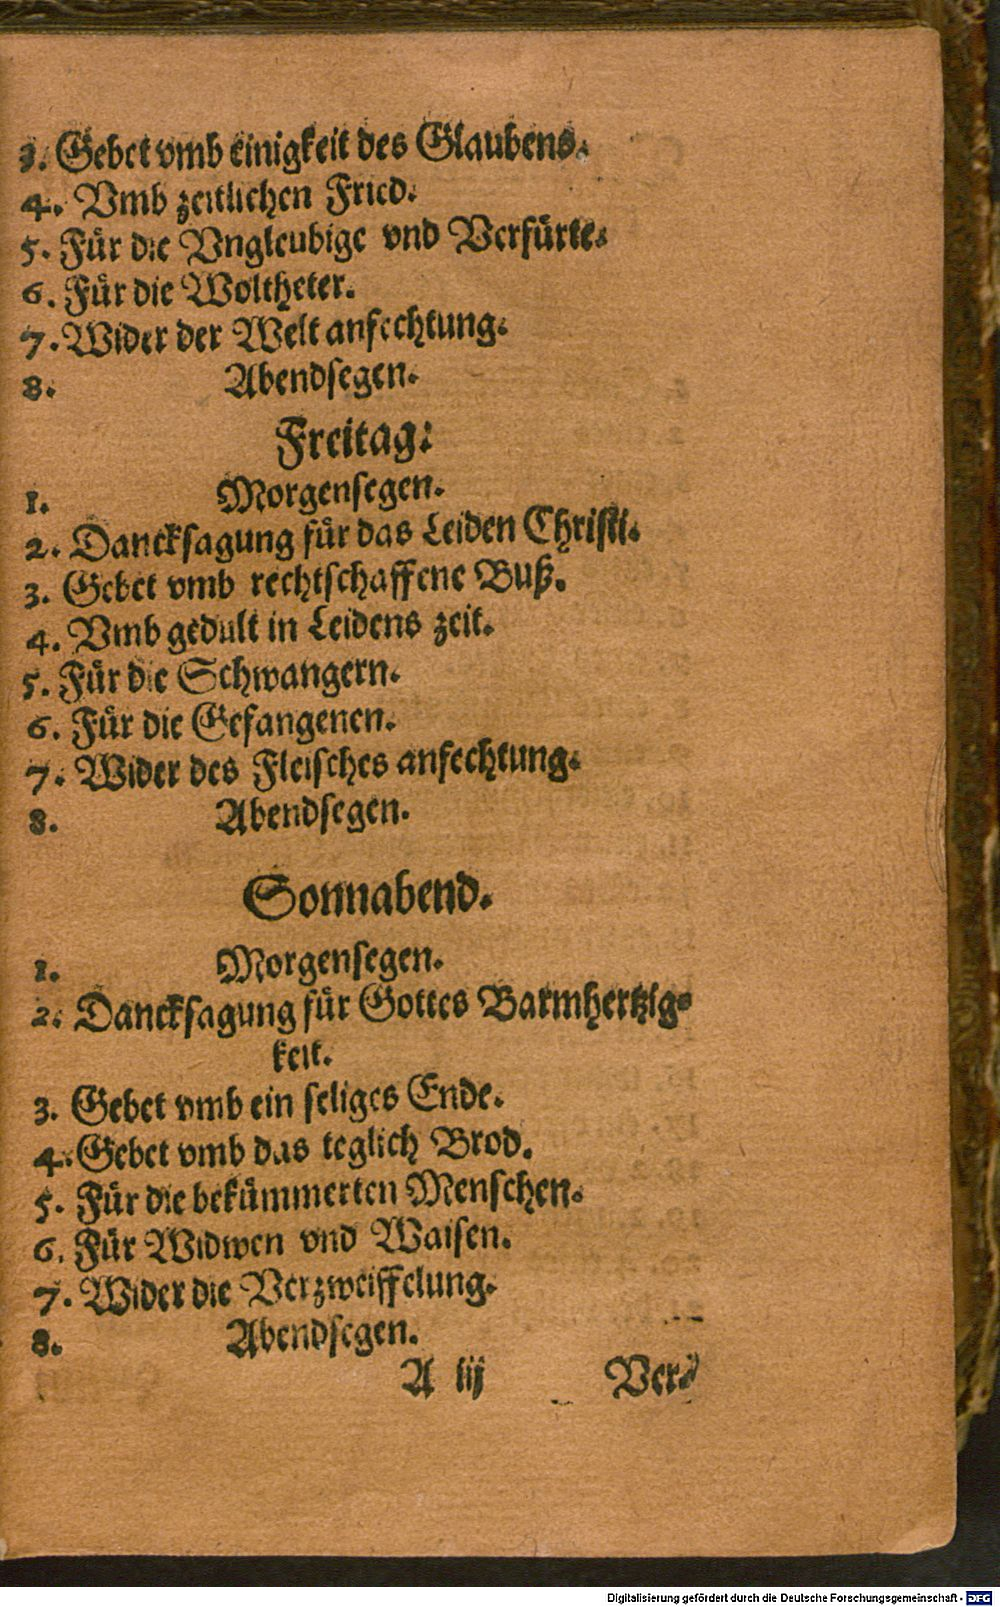 3. Gebet vmb einigkeit des Glaubens.
4. Vmb zeitlichen Fried.
5. Für die Vngleubige vnd Verfürte.
6. Für die Woltheter.
7. Wider der Welt anfechtung.
8. Abendsegen.
Freitag:
1. Morgensegen.
2. Dancksagung für das Leiden Christi.
3. Gebet vmb rechtschaffene Buß.
4. Vmb gedult in Leidens zeit.
5. Für die Schwangern.
6. Für die Gefangenen.
7. Wider des Fleisches anfechtung.
8. Abendsegen.
Sonnabend.
1. Morgensegen.
2. Dancksagung für Gottes Barmhertzig-
keit.
3. Gebet vmb ein seliges Ende.
4. Gebet vmb das teglich Brod.
5. Für die bekümmerten Menschen.
6. Für Widwen vnd Waisen.
7. Wider die Verzweiffelung.
8. Abendsegen.
A iij Ver-
Digitalisierung gefördert durch die Deutsche Forschungsgemeinschaft - DFG